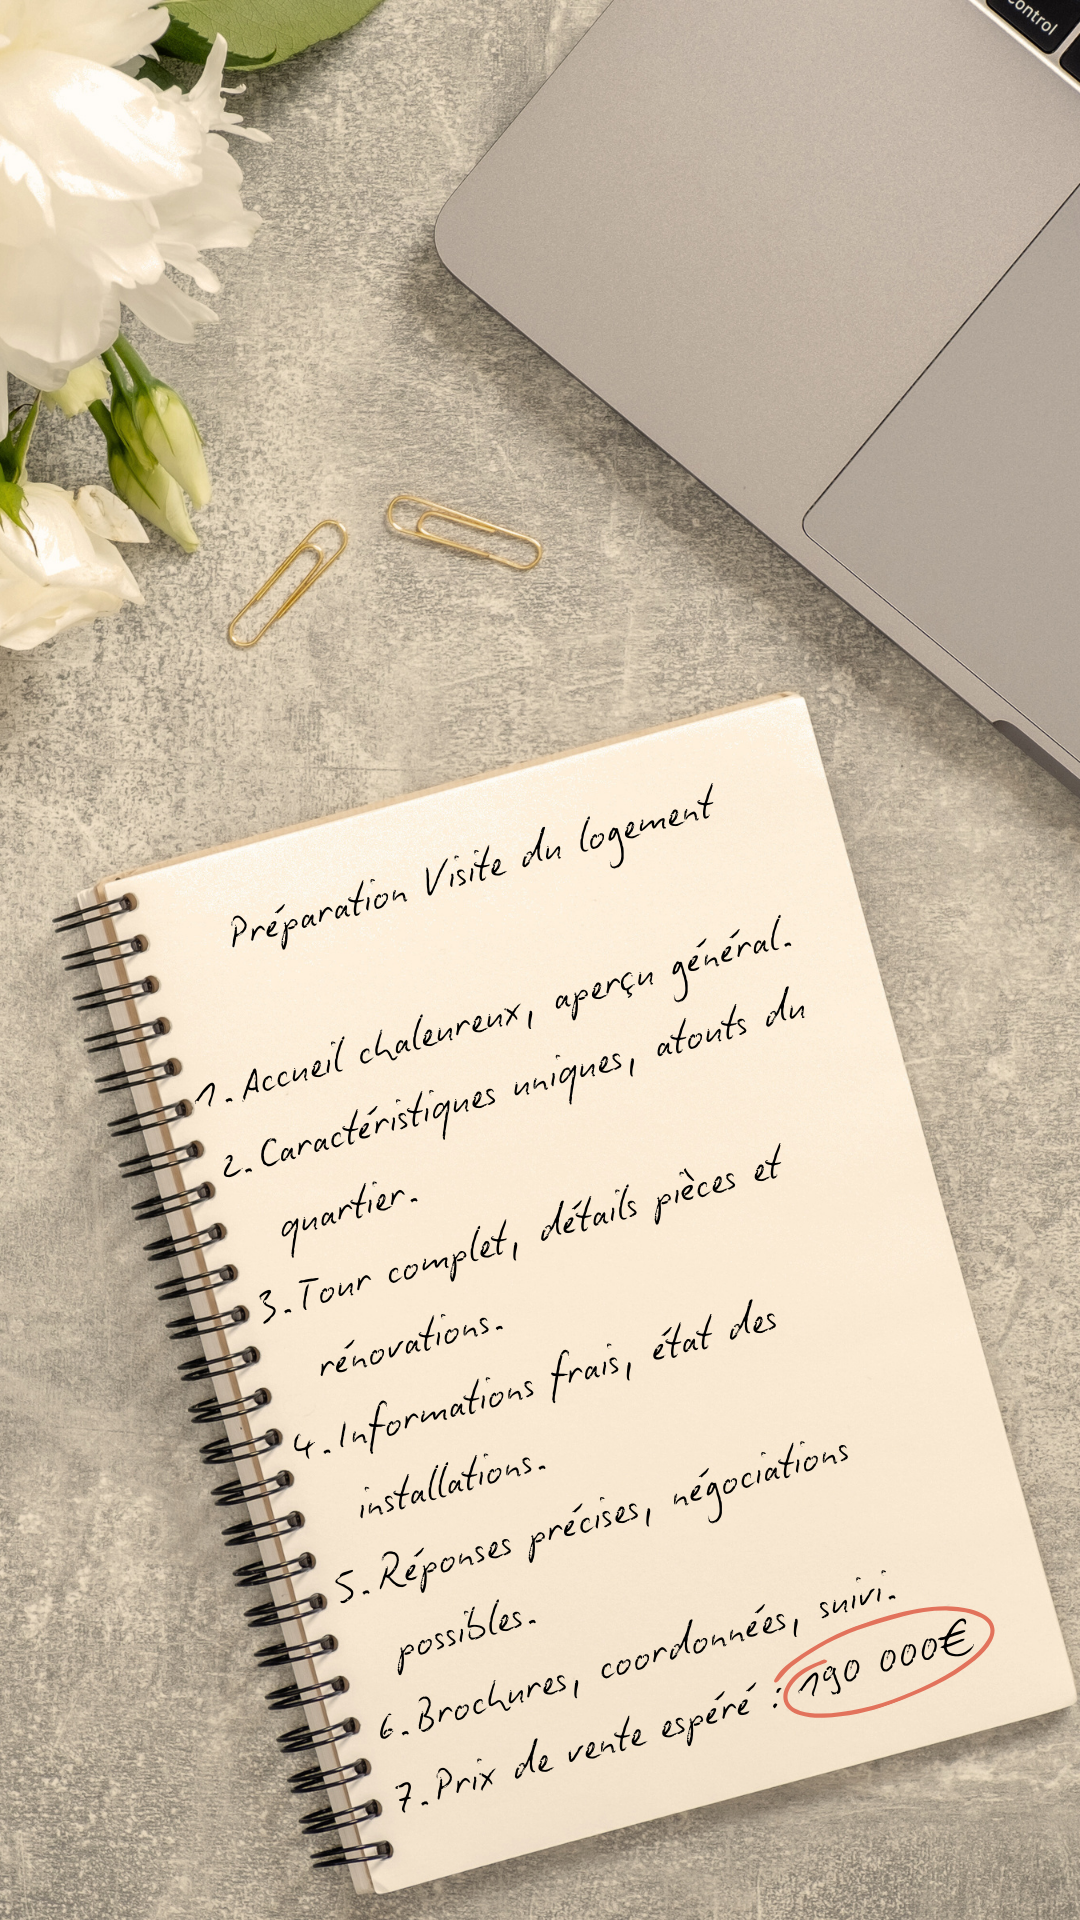 control
Préparation Visite du logement
1. Accueil chaleureux, aperçu général.
2. Caractéristiques uniques, atouts du
quartier.
3. Tour complet, détails pièces et
rénovations.
4. Informations frais, état des
installations.
5. Réponses précises, négociations
possibles.
6. Brochures, coordonnées, suivi.
7. Prix de vente espéré : 190 000€